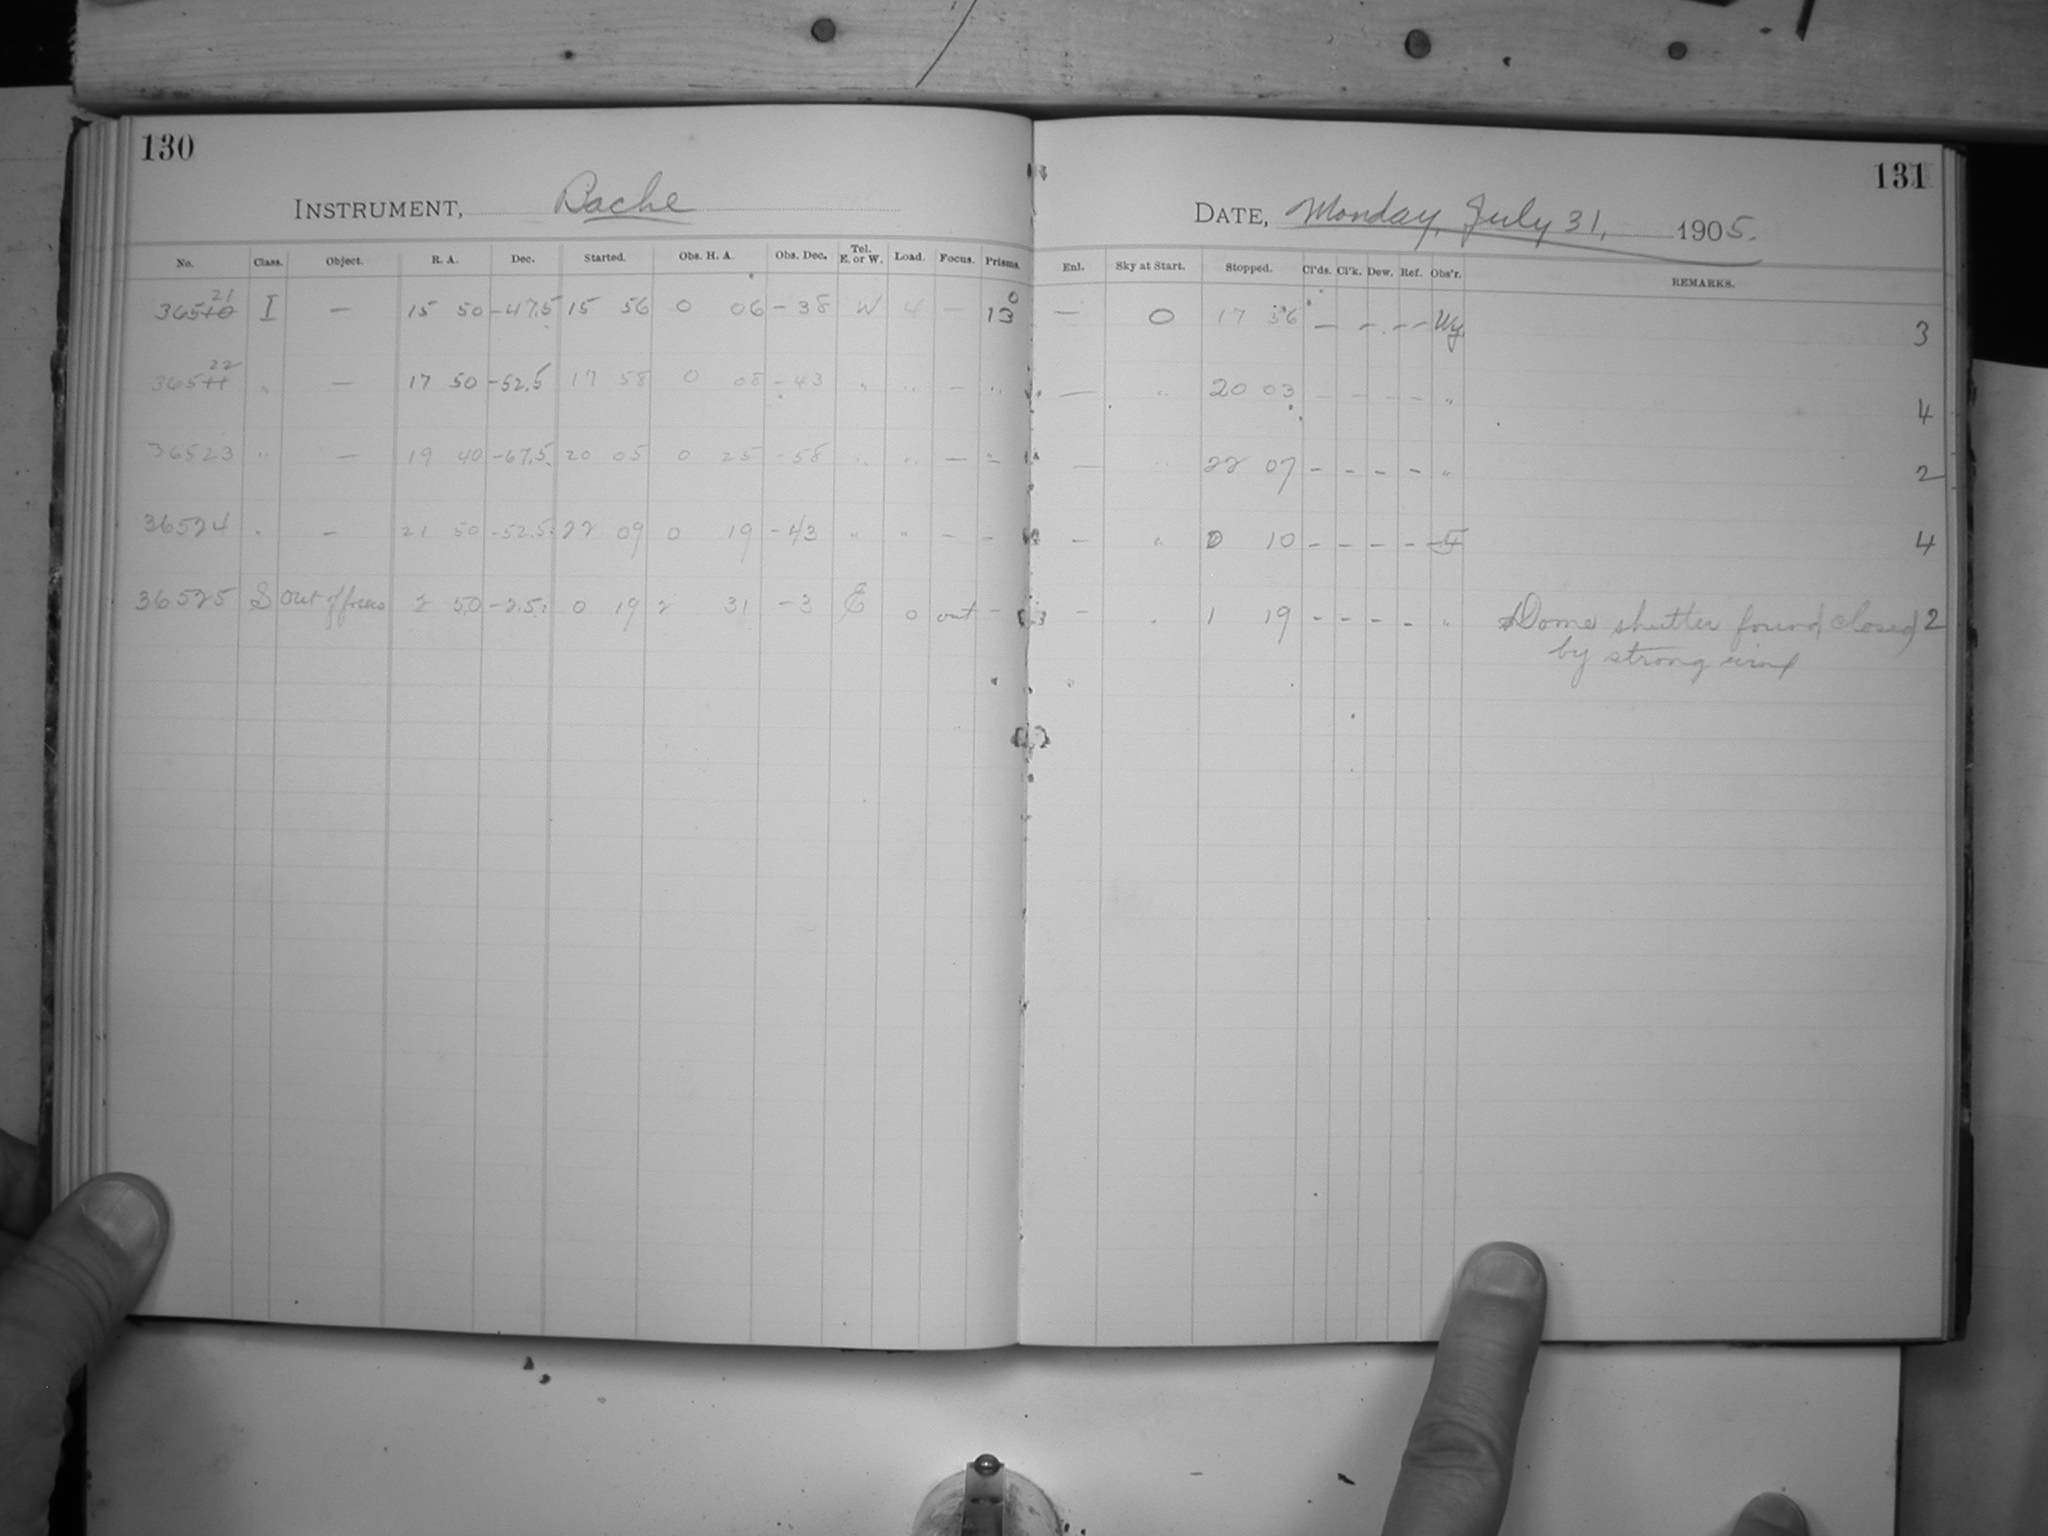 130
INSTRUMENT, Bache
No. Class. Object. R. A. Dec. Started. Obs. H. A. Obs. Dec. Tel. E. or W. Load. Focus. Prisms
21 0
36510 I — 15 50 -47.5 15 56 0 06 -38 W 4 — 13
22
36511 " — 17 50 -52.5 17 58 0 08 -43 " " — "
36523 " — 19 40 -67.5 20 05 0 25 -58 " " — "
36524 " — 21 50 -52.5 22 09 0 19 -43 " " — —
36525 S out of focus 2 50 -2.5 0 19 2 31 -3 E 0 out —
131
DATE, Monday, July 31, 1905.
Enl. Sky at Start. Stopped. Cl'ds. Cl'k. Dew. Ref. Obs'r. REMARKS.
— 0 17 56 — — — — 3
— " 20 03 — — — — " 4
— " 22 07 — — — — " 2
— " 0 10 — — — — 4
— " 1 19 — — — — " Dome shutter found closed 2
by strong wind